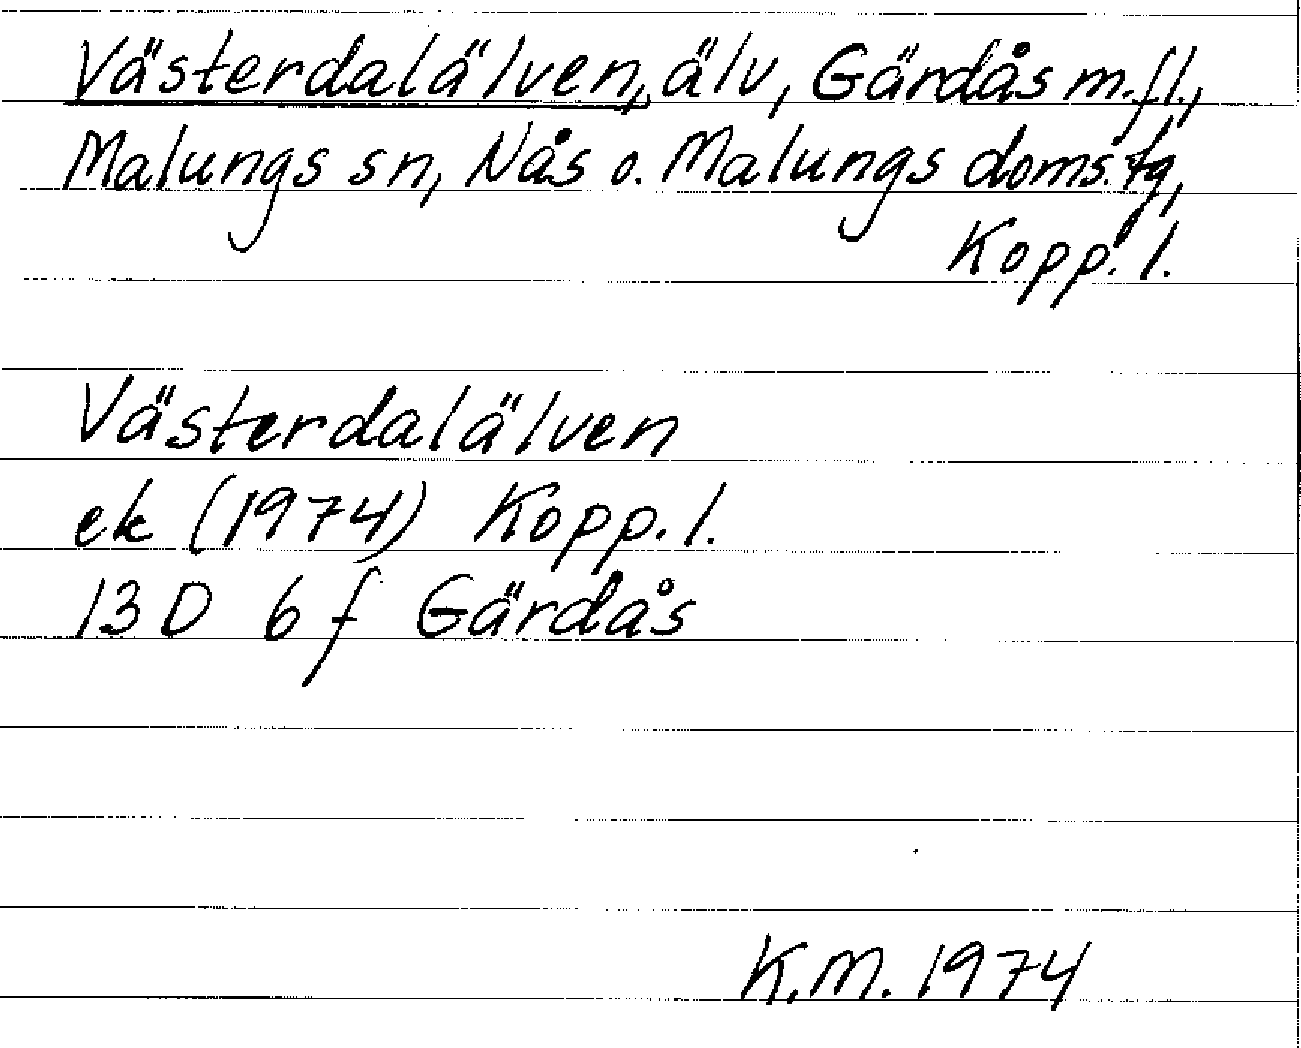 Västerdalälven, älv, Gärdås m.fl.,
Malungs sn, Nås o. Malungs doms.tg,
Kopp. l.
Västerdalälven
ek (1974) Kopp. l.
13 D 6 f Gärdås
K.M. 1974